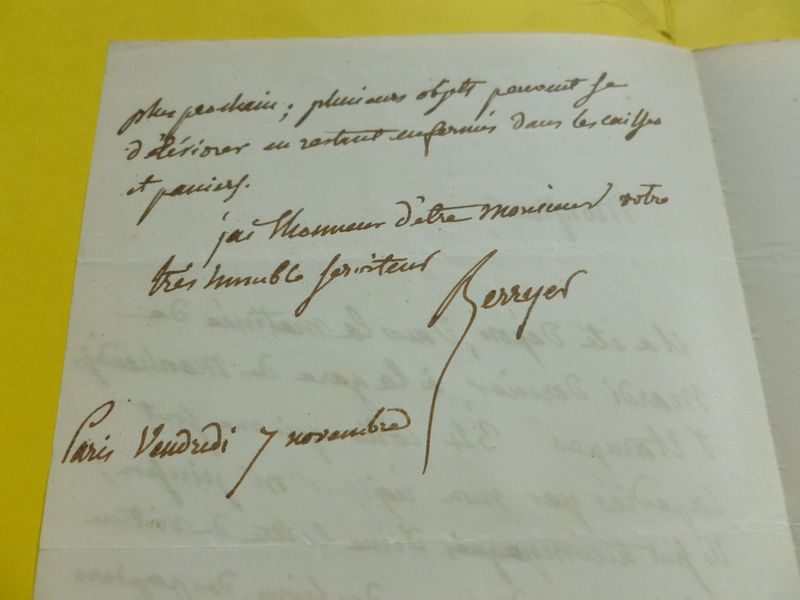 plus prochain ; plusieurs objets peuvent se
détériorer en restant enfermés dans les caisses
et paniers.
j'ai l'honneur d'être monsieur votre
très humble serviteur
Berryer
Paris Vendredi 7 novembre